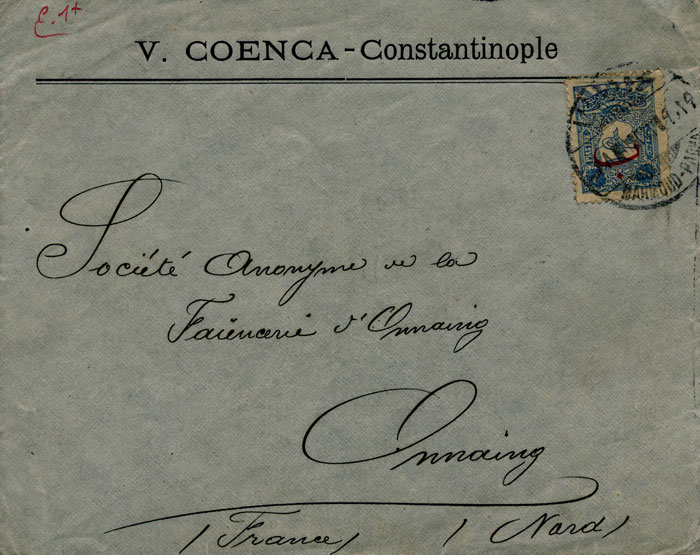 E. 1+
V. COENCA - Constantinople
MAHMOUD-PACHA
Société Anonyme de la
Faïencerie d'Onnaing
Onnaing
(France) (Nord)